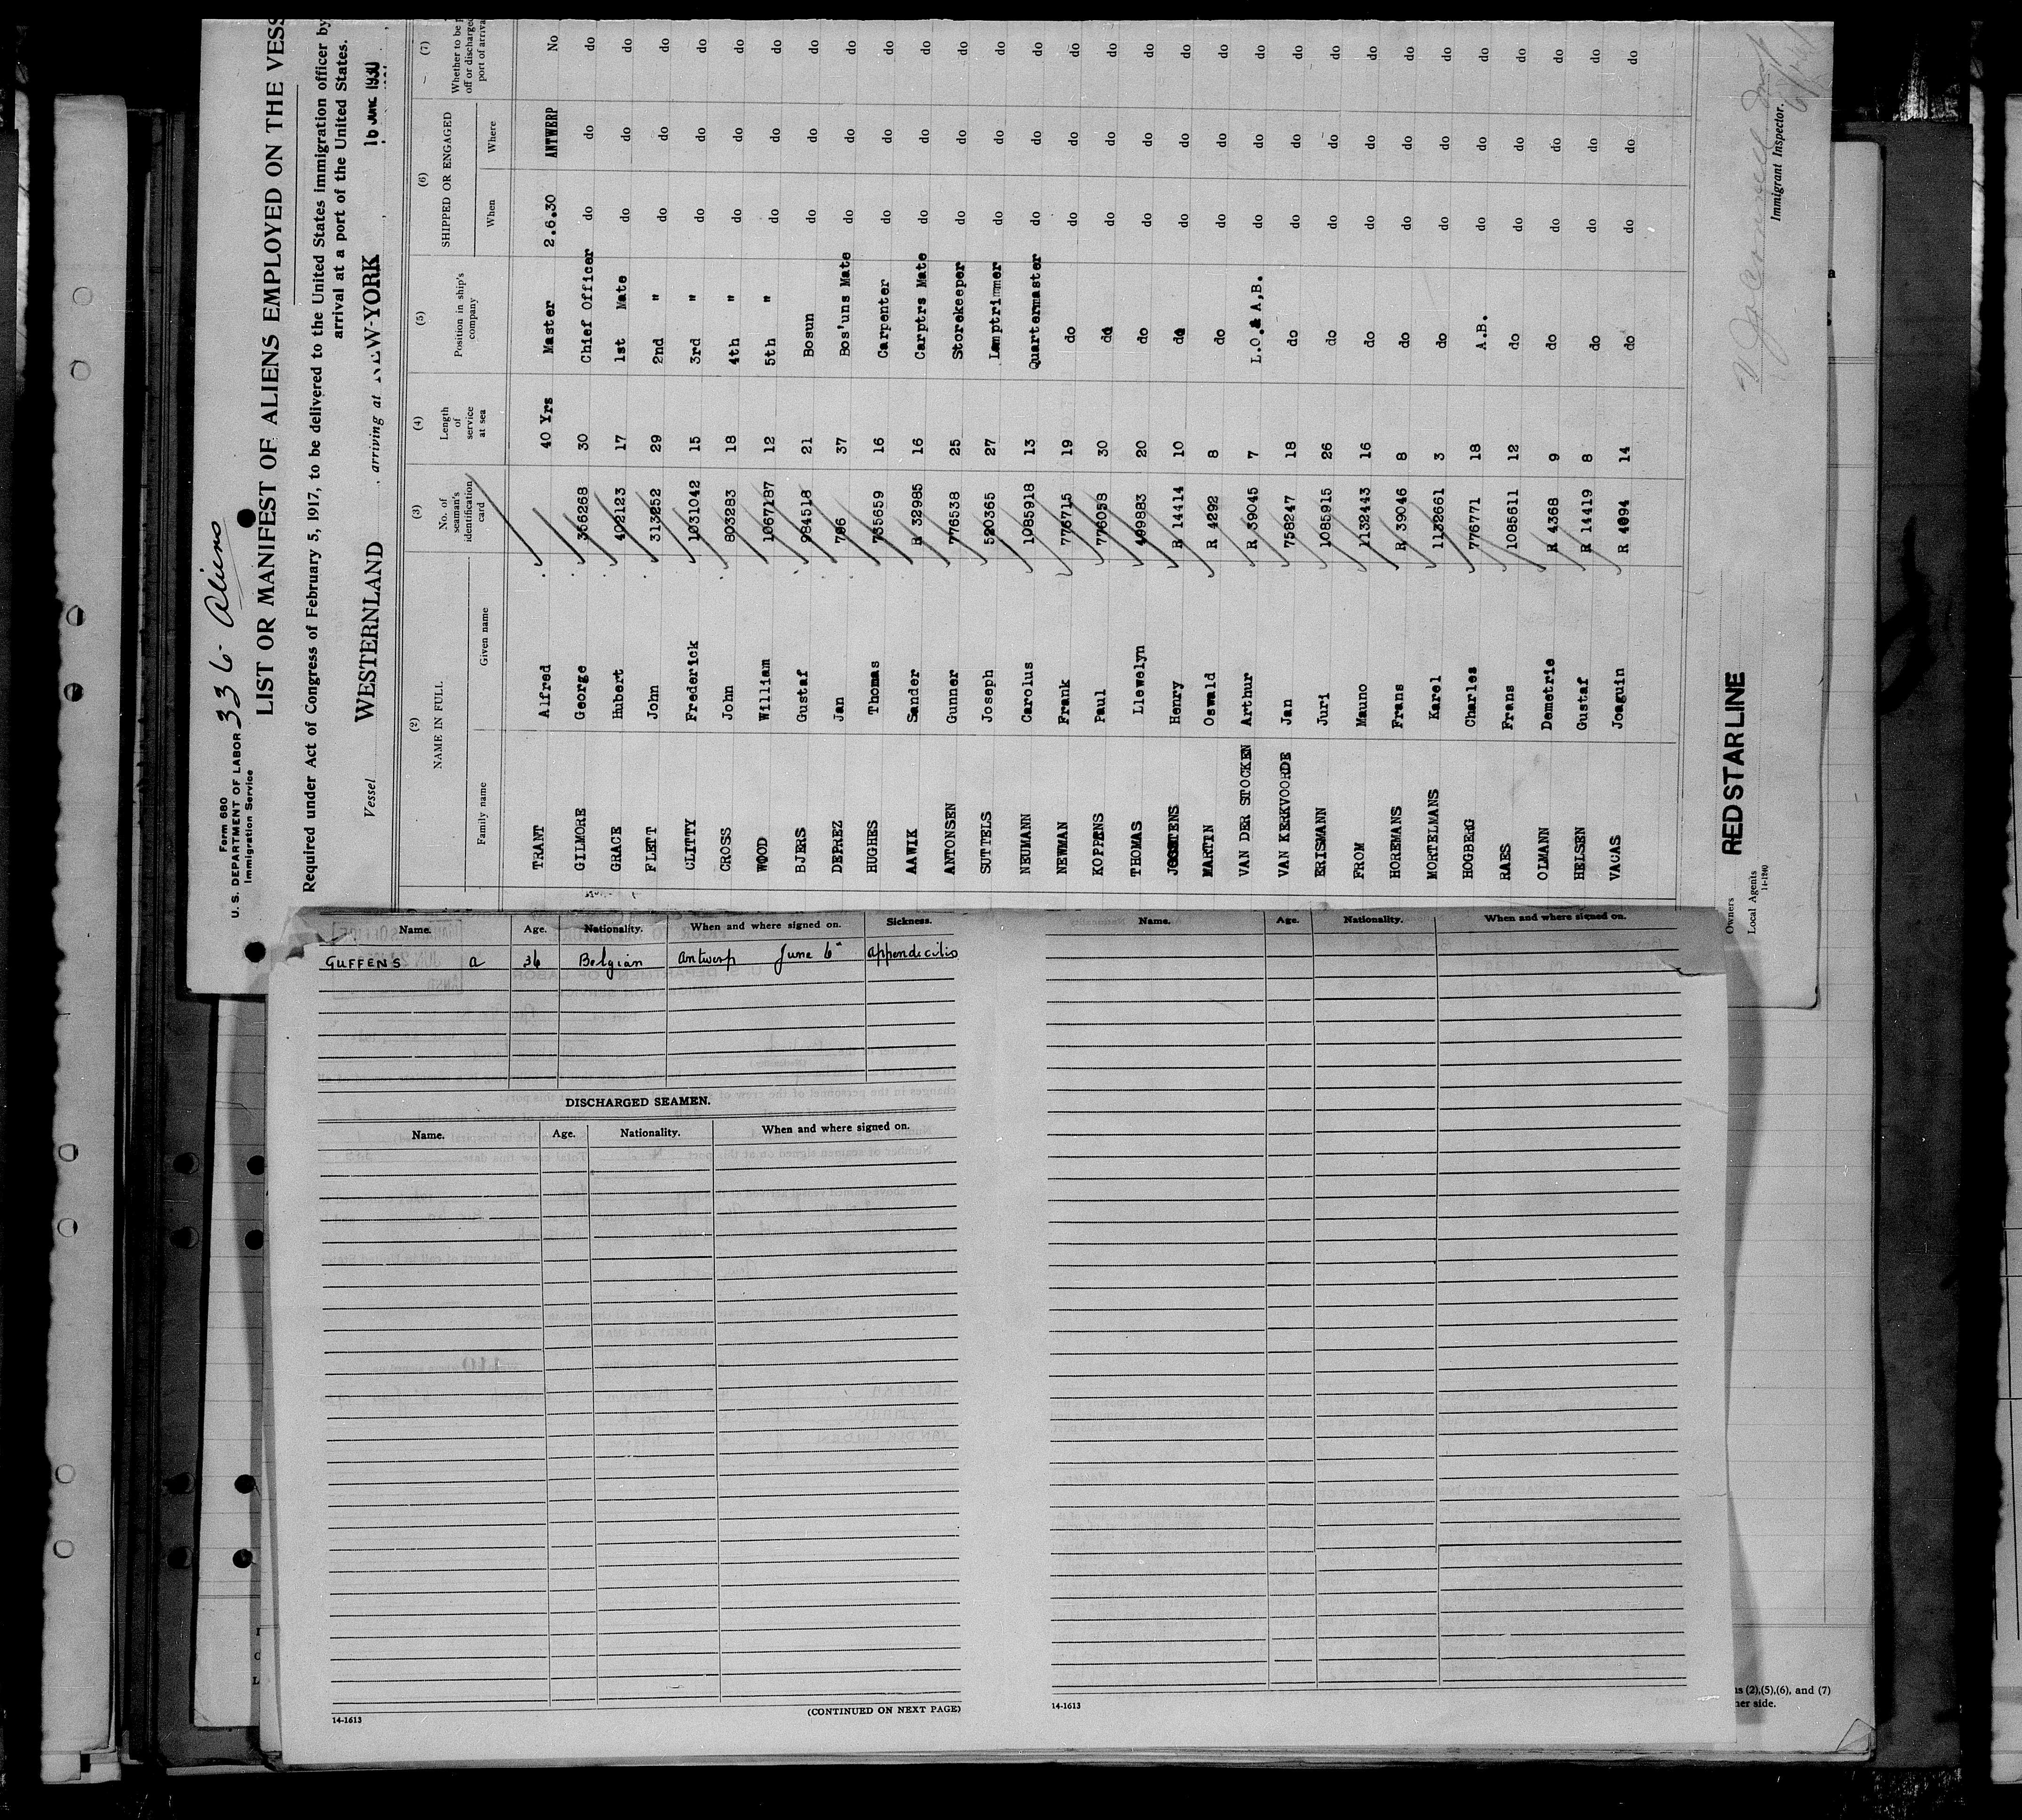 Form 680
U. S. DEPARTMENT OF LABOR
Immigration Service
336- Aliens
LIST OR MANIFEST OF ALIENS EMPLOYED ON THE VESS
Required under Act of Congress of February 5, 1917, to be delivered to the United States immigration officer by
arrival at a port of the United States.
Vessel WESTERNLAND, arriving at NEW-YORK, 16 JUNE 1930
(2) (3) (4) (5) (6) (7)
NAME IN FULL
Family name Given name
No. of seaman's identification card
Length of service at sea
Position in ship's company
SHIPPED OR ENGAGED
When Where
Whether to be
off or discharged
port of arrival
TRANT Alfred 40 Yrs Master 2.6.30 ANTWERP No
GILMORE George 356268 30 Chief Officer do do do
GRACE Hubert 402123 17 1st Mate do do do
FLETT John 313252 29 2nd " do do do
CLITTY Frederick 1031042 15 3rd " do do do
CROSS John 803283 18 4th " do do do
WOOD William 1067187 12 5th " do do do
BJERS Gustaf 984518 21 Bosun do do do
DEPREZ Jan 796 37 Bos'uns Mate do do do
HUGHES Thomas 735659 16 Carpenter do do do
AAWIK Sander R 32985 16 Carptrs Mate do do do
ANTONSEN Gunner 776538 25 Storekeeper do do do
SUTTELS Joseph 520365 27 Lamptrimmer do do do
NEUMANN Carolus 1085918 13 Quartermaster do do do
NEWMAN Frank 776715 19 do do do do
KOPPENS Paul 776058 30 do do do do
THOMAS Llewelyn 409883 20 do do do do
JOOSTENS Henry R 14414 10 do do do do
MARTIN Oswald R 4292 8 do do do do
VAN DER STOCKEN Arthur R 39045 7 L.O.& A,B. do do do
VAN KERKVOORDE Jan 758247 18 do do do do
ERISMANN Juri 1085915 26 do do do do
FROM Mauno 1132443 16 do do do do
HOREMANS Frans R 39046 8 do do do do
MORTELMANS Karel 1132661 3 do do do do
HOGBERG Charles 776771 18 A.B. do do do
RAES Frans 1085611 12 do do do do
OLMANN Demetrie R 4368 9 do do do do
HELSEN Gustaf R 14419 8 do do do do
VACAS Joaguin R 4094 14 do do do do
Owners RED STAR LINE
Local Agents
14-1240
Immigrant Inspector.
Name. Age. Nationality. When and where signed on. Sickness.
GUFFENS a 36 Belgian Antwerp June 6" appendicitis
DISCHARGED SEAMEN.
Name. Age. Nationality. When and where signed on.
(CONTINUED ON NEXT PAGE)
14-1613
Name. Age. Nationality. When and where signed on.
14-1613
ns (2),(5),(6), and (7)
her side.